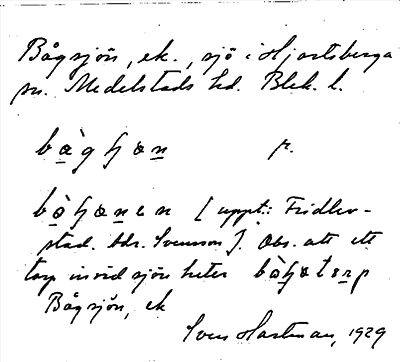 Bågsjön, ek., sjö i Hjortsberga
sn. Medelstads hd. Blek. l.
bàgʃən p.
[uppt.: Fridlev-
stad. hdr. Svensson]. Obs. att ett
torp invid sjön heter
Bågsjön, ek
Sven Hartman, 1929